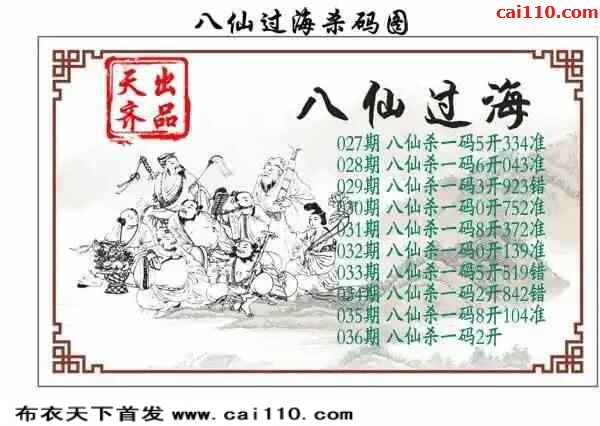 八仙过海杀码图
cai110.com
天齐出品
八仙过海
027期 八仙杀一码5开334准
028期 八仙杀一码6开043准
029期 八仙杀一码3开923错
030期 八仙杀一码0开752准
031期 八仙杀一码8开372准
032期 八仙杀一码0开139准
033期 八仙杀一码5开519错
034期 八仙杀一码2开842错
035期 八仙杀一码8开104准
036期 八仙杀一码2开
布衣天下首发 www.cai110.com